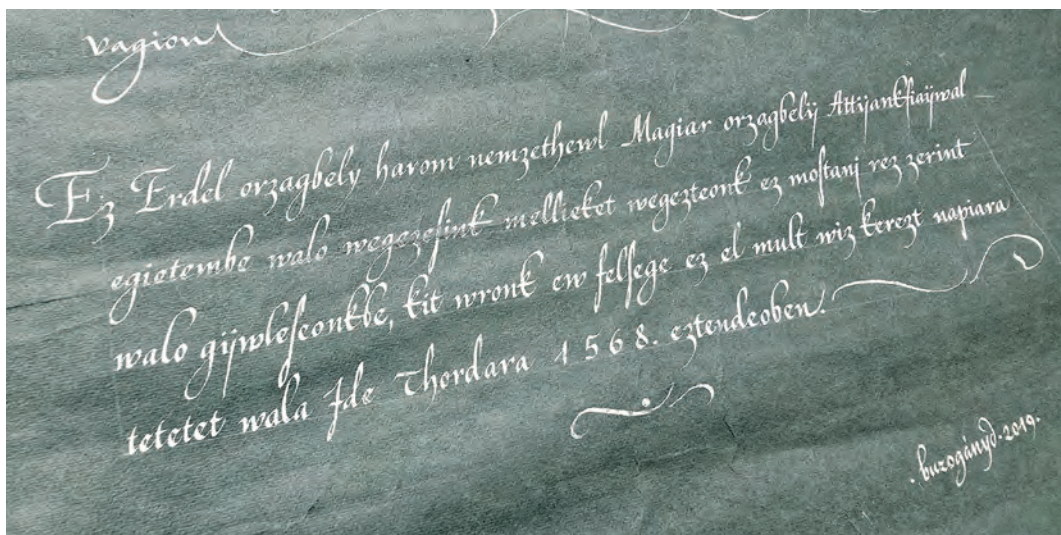 vagion
Ez Erdel orzagbely harom nemzethewl Magiar orzagbelÿ Attÿankfiaÿwal
egietembe walo wegezesink mellieket wegezteonk ez mostanj rez zerint
walo gÿwleseonkbe, kit wronk ew felsege ez el mult wiz kerezt napiara
tetetet wala Ide Thordara 1568. eztendeoben.
.buzogányd.2019.